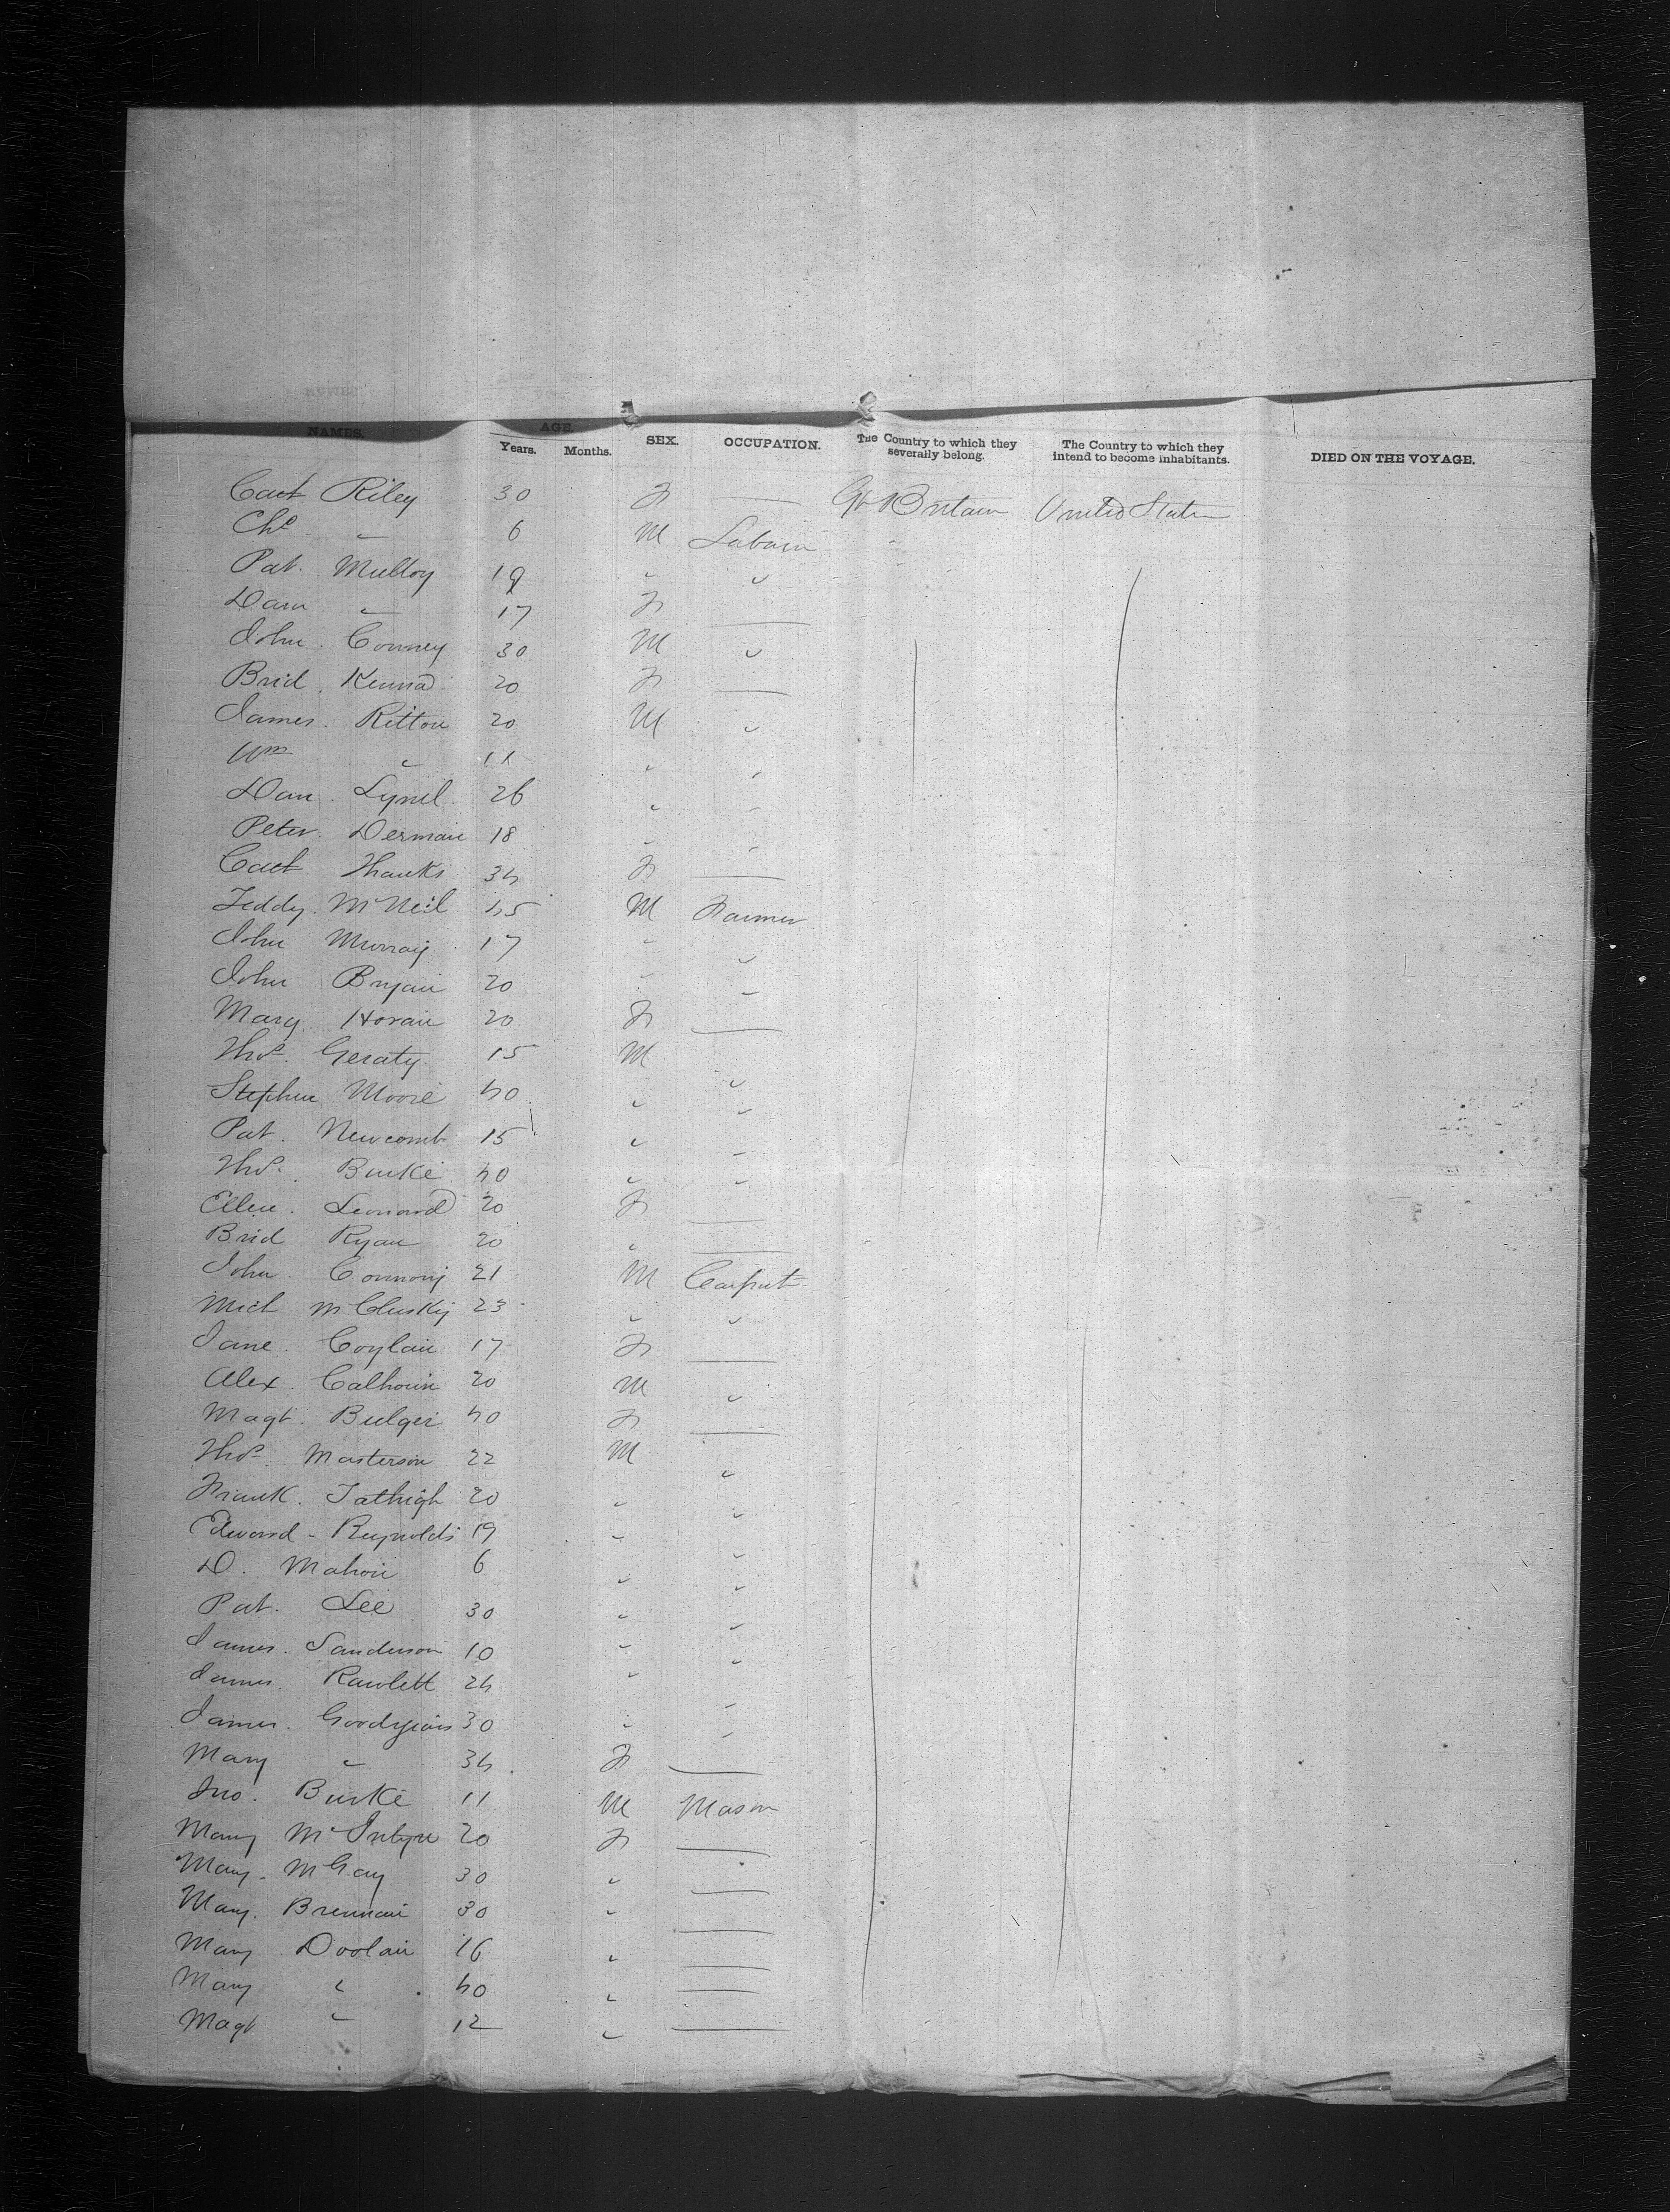 NAMES. AGE. SEX. OCCUPATION. The Country to which they severally belong. The Country to which they intend to become inhabitants. DIED ON THE VOYAGE.
Years. Months.
Cact Riley 30 F — Gt Britain United States
Chs " 6 M Labour
Pat. Mulloy 19 " "
Dam " 17 F —
John Conney 30 M "
Brid. Kenna 20 F —
James. Ritton 20 M "
Wm " 11 " "
Dan. 26 " "
Peter. Dermain 18 " "
Cact. Thanks 34 F —
Teddy. McNeil 45 M Farmer
John Murray 17 " "
John Bryan 20 " "
Mary Horan 20 F —
Thos. Geraty 15 M "
Stephen Moore 40 " "
Pat. Newcomb 15 " "
Thos. Burke 40 " "
Ellen. Leonard 20 F —
Brid Ryan 20 " —
John Connory 21 M Carpnt
Mich McClusky 23 " "
Jane. Coylan 17 F —
Alex. Calhoun 20 M "
Magt. Bulger 40 F —
Thos. Masterson 22 M "
Frank. Tathigh 20 " "
Edward - Reynolds 19 " "
D. Mahon 6 " "
Pat. Lee 30 " "
James. Sanderson 10 " "
James. Rawlett 24 " "
James. 30 " "
Mary " 34 F —
Jno. Burke 11 M Mason
Mary McIntyre 20 F —
Mary. McGay 30 " —
Mary. Brennan 30 " —
Mary Doolan 16 " —
Mary " 40 " —
Magt " 12 " —